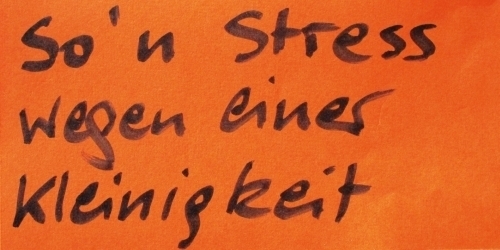 So'n Stress
wegen einer
Kleinigkeit